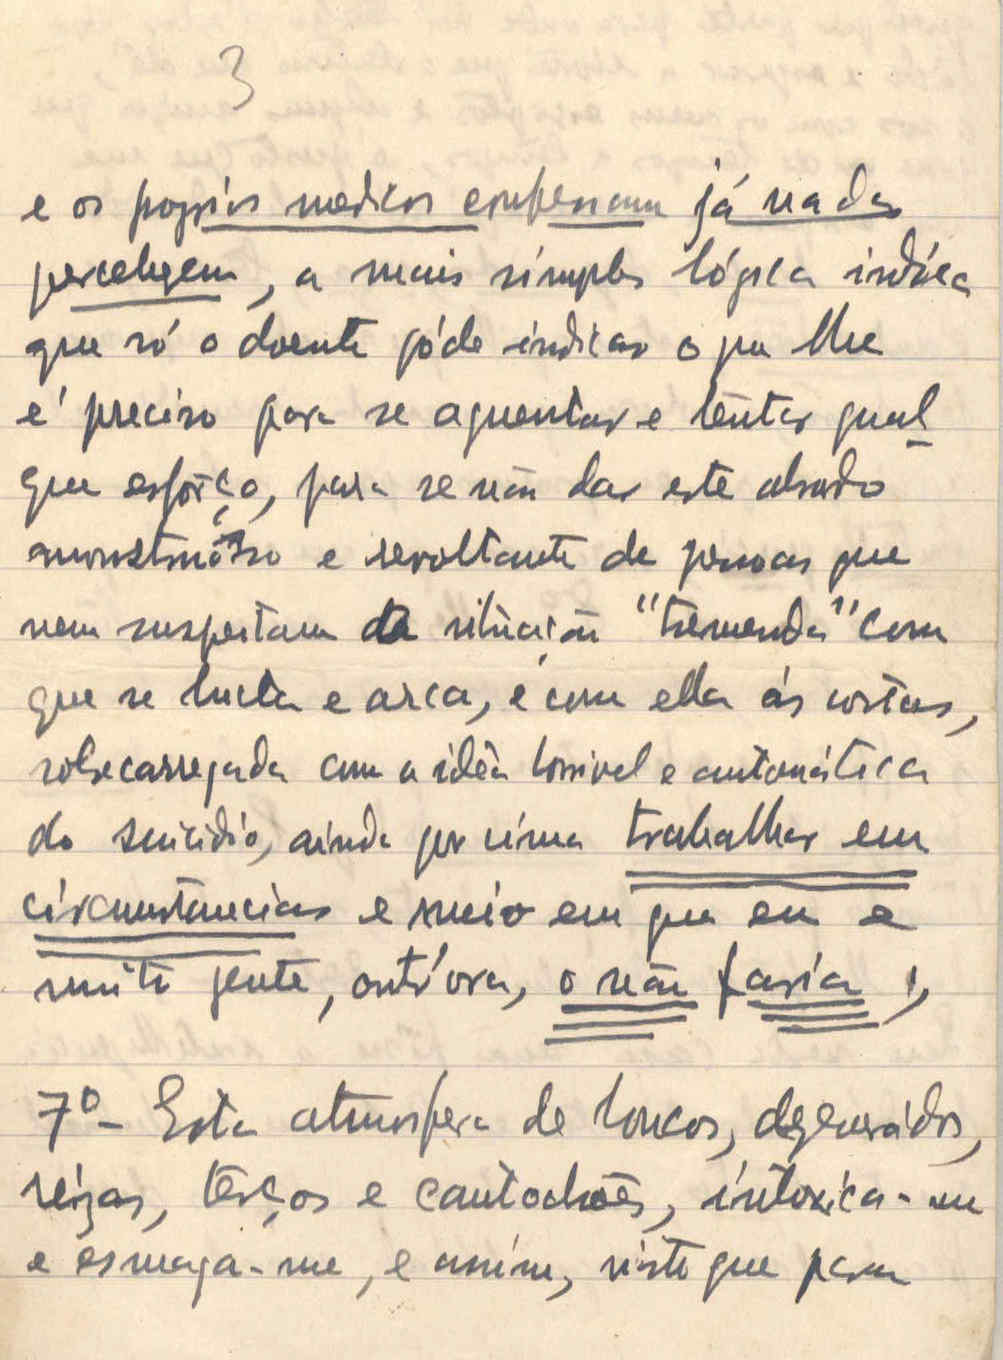 3
e os proprios medicos confessam já nada
percebem, a mais simples lógica indíca
que só o doente póde indicar o que lhe
é preciso para se aguentar e tentar qual
quer esfôrço, para se não dar este absurdo
monstruôso e revoltante de pessoas que
nem suspeitam da situação "tremenda" com
que se lucta e arca, e com ella ás costas,
sobrecarregada com a idêa horrivel e automática
do suicidio, ainda por cima trabalhar em
circumstancias e meio em que eu e
muita gente, outr'ora, o não faria!,
7º - Esta atmosfera de loucos, degenerádos,
rêzas, terços e cantochões, intoxica-me
e esmaga-me, e assim, visto que para